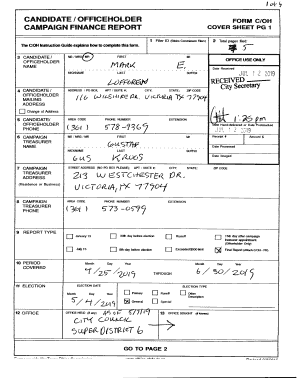 1 of 4
CANDIDATE / OFFICEHOLDER
CAMPAIGN FINANCE REPORT
FORM C/OH
COVER SHEET PG 1
The C/OH Instruction Guide explains how to complete this form.
1 Filer ID (Ethics Commission Filers)
2 Total pages filed:
5
3 CANDIDATE / OFFICEHOLDER NAME
MS / MRS / MR
FIRST
MI
MARK E.
NICKNAME
LAST
SUFFIX
LOFFGREN
OFFICE USE ONLY
Date Received
RECEIVED
JUL 12 2019
City Secretary
4 CANDIDATE / OFFICEHOLDER MAILING ADDRESS
Change of Address
ADDRESS / PO BOX; APT / SUITE #; CITY; STATE; ZIP CODE
116 WILSHIRE DR. VICTORIA, TX 77904
5 CANDIDATE / OFFICEHOLDER PHONE
AREA CODE
PHONE NUMBER
EXTENSION
(361) 578-9369
JUL 12 2019
1:25 pm
6 CAMPAIGN TREASURER NAME
MS / MRS / MR
FIRST
MI
GUSTAF
NICKNAME
LAST
SUFFIX
GUS
Receipt #
Amount $
Date Processed
Date Imaged
7 CAMPAIGN TREASURER ADDRESS
(Residence or Business)
STREET ADDRESS (NO PO BOX PLEASE); APT / SUITE #; CITY; STATE; ZIP CODE
213 WESTCHESTER DR.
VICTORIA, TX 77904
8 CAMPAIGN TREASURER PHONE
AREA CODE
PHONE NUMBER
EXTENSION
(361) 573-0599
9 REPORT TYPE
January 15
30th day before election
Runoff
15th day after campaign treasurer appointment (Officeholder Only)
July 15
8th day before election
Final Report
10 PERIOD COVERED
Month Day Year
4/25/2019
THROUGH
Month Day Year
6/30/2019
11 ELECTION
ELECTION DATE
Month Day Year
5/4/2019
ELECTION TYPE
Primary
Runoff
Other Description
General
Special
12 OFFICE
OFFICE HELD (if any) AS OF 5/7/19
CITY COUNCIL
SUPER DISTRICT 6
13 OFFICE SOUGHT (if known)
GO TO PAGE 2